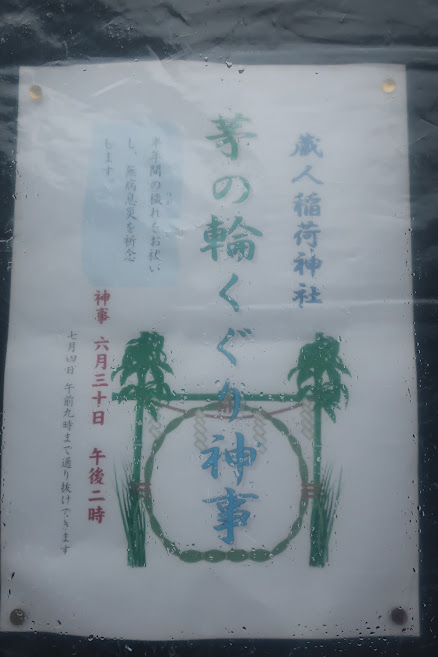 蔵人稲荷神社
茅の輪くぐり神事
半年間の穢れをお祓い
し、無病息災を祈念
します。
神事 六月三十日 午後二時
七月四日 午前九時まで通り抜けできます